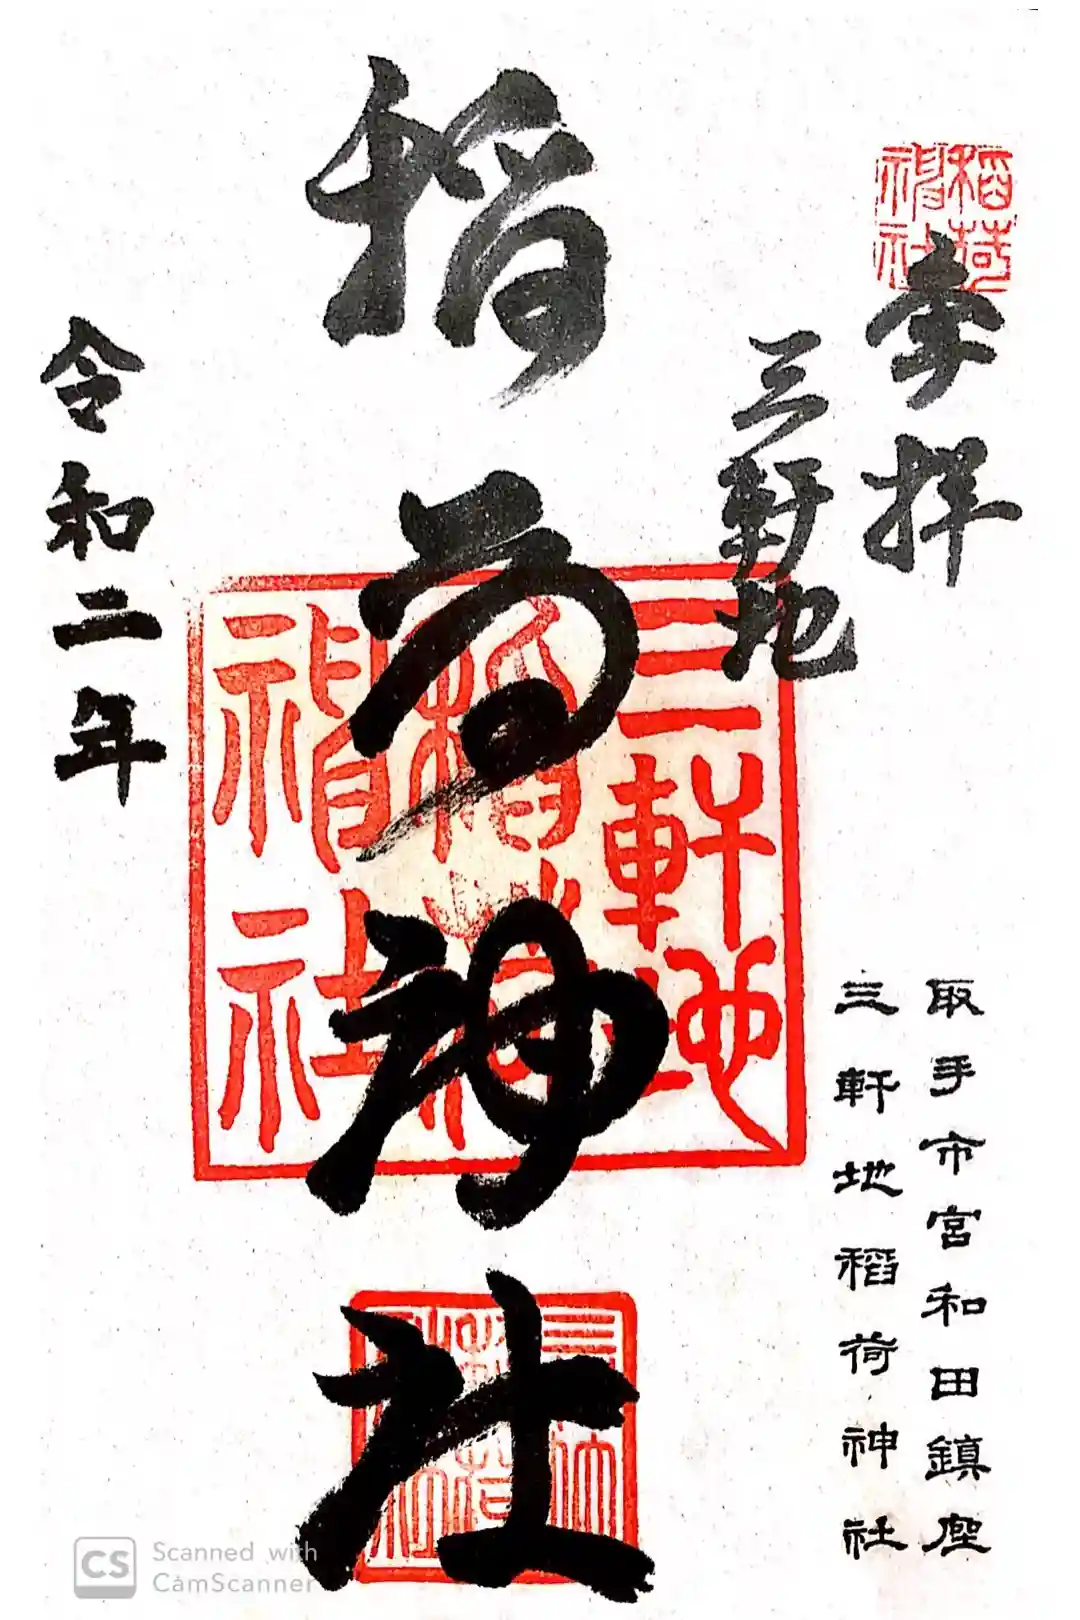 奉拝
三軒地
稲荷神社
令和二年
取手市宮和田鎮座
三軒地稲荷神社
稲荷
神社
三軒地
稲荷
神社
Scanned with
CamScanner